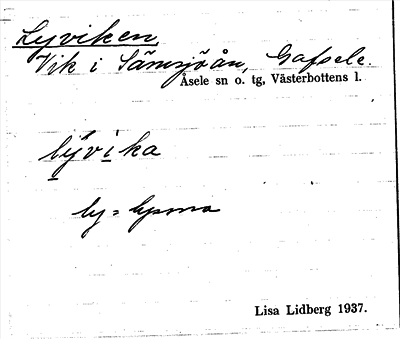 Lyviken,
Vik i Sämsjöån, Gafsele.
Åsele sn o. tg, Västerbottens l.
lyvika
ly = lysma
Lisa Lidberg 1937.